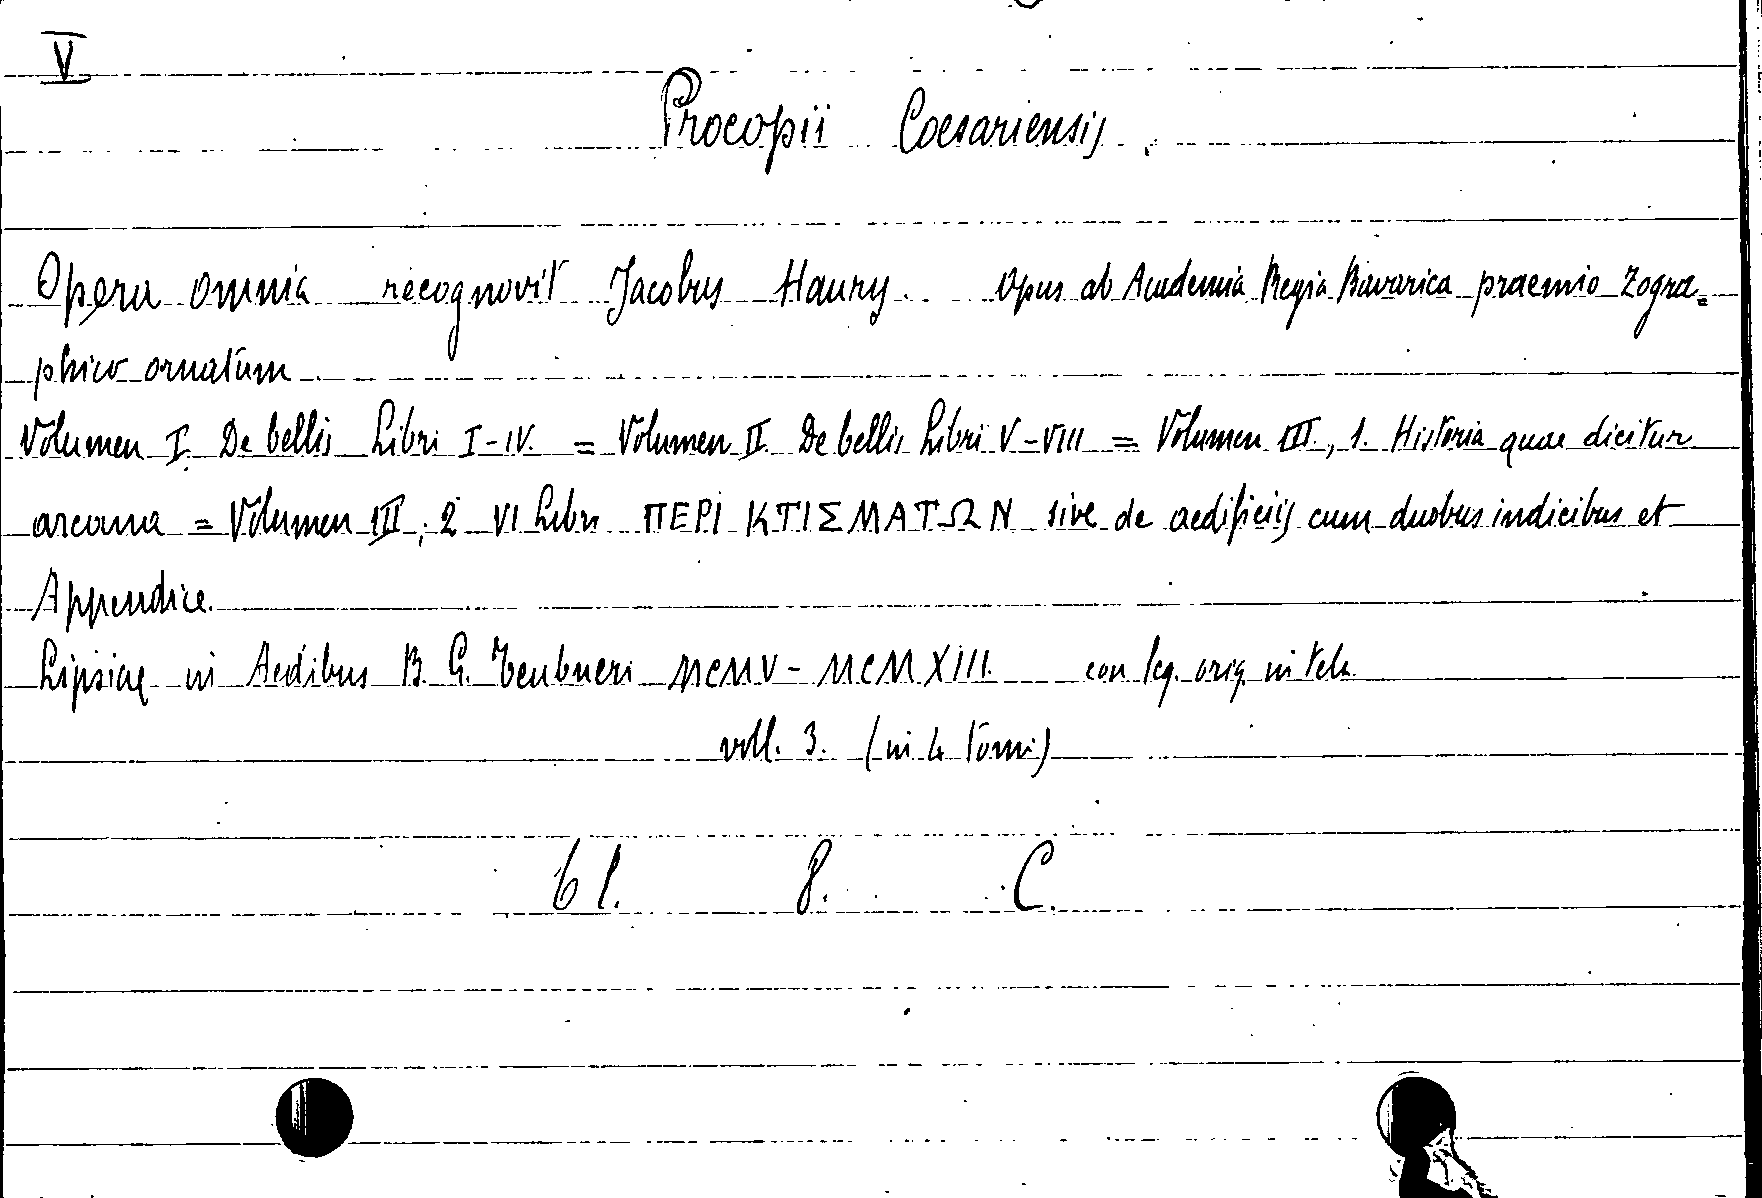 V
Procopii Caesariensis
Opera omnia recognovit Jacobus Haury. Opus ab Academia Regia Bavarica praemio Zogra=
phico ornatum
Volumen I. De bellis Libri I-IV. = Volumen II. De bellis Libri V-VIII = Volumen III, 1. Historia quae dicitur
arcana = Volumen III, 2 VI Libri ΠΕΡΙ ΚΤΙΣΜΑΤΩΝ sive de aedificiis cum duobus indicibus et
Appendice.
Lipsiae in Aedibus B. G. Teubneri MCMV - MCMXIII. con leg. orig. in tela
voll. 3. (in 4 tomi)
61. 8. C.